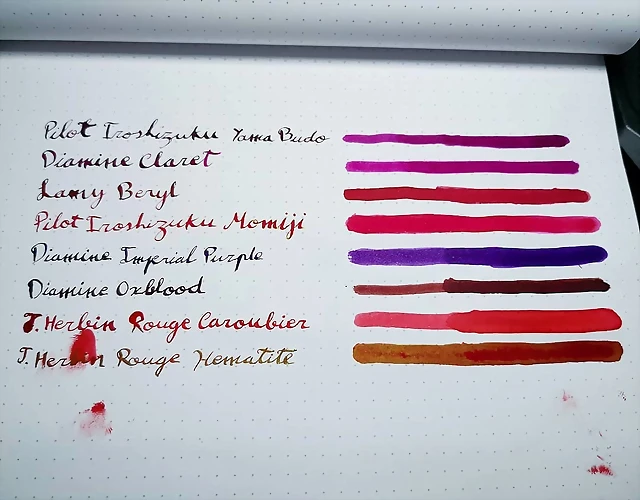 Pilot Iroshizuku Yama Budo
Diamine Claret
Lamy Beryl
Pilot Iroshizuku Momiji
Diamine Imperial Purple
Diamine Oxblood
J. Herbin Rouge Caroubier
J. Herbin Rouge Hematite